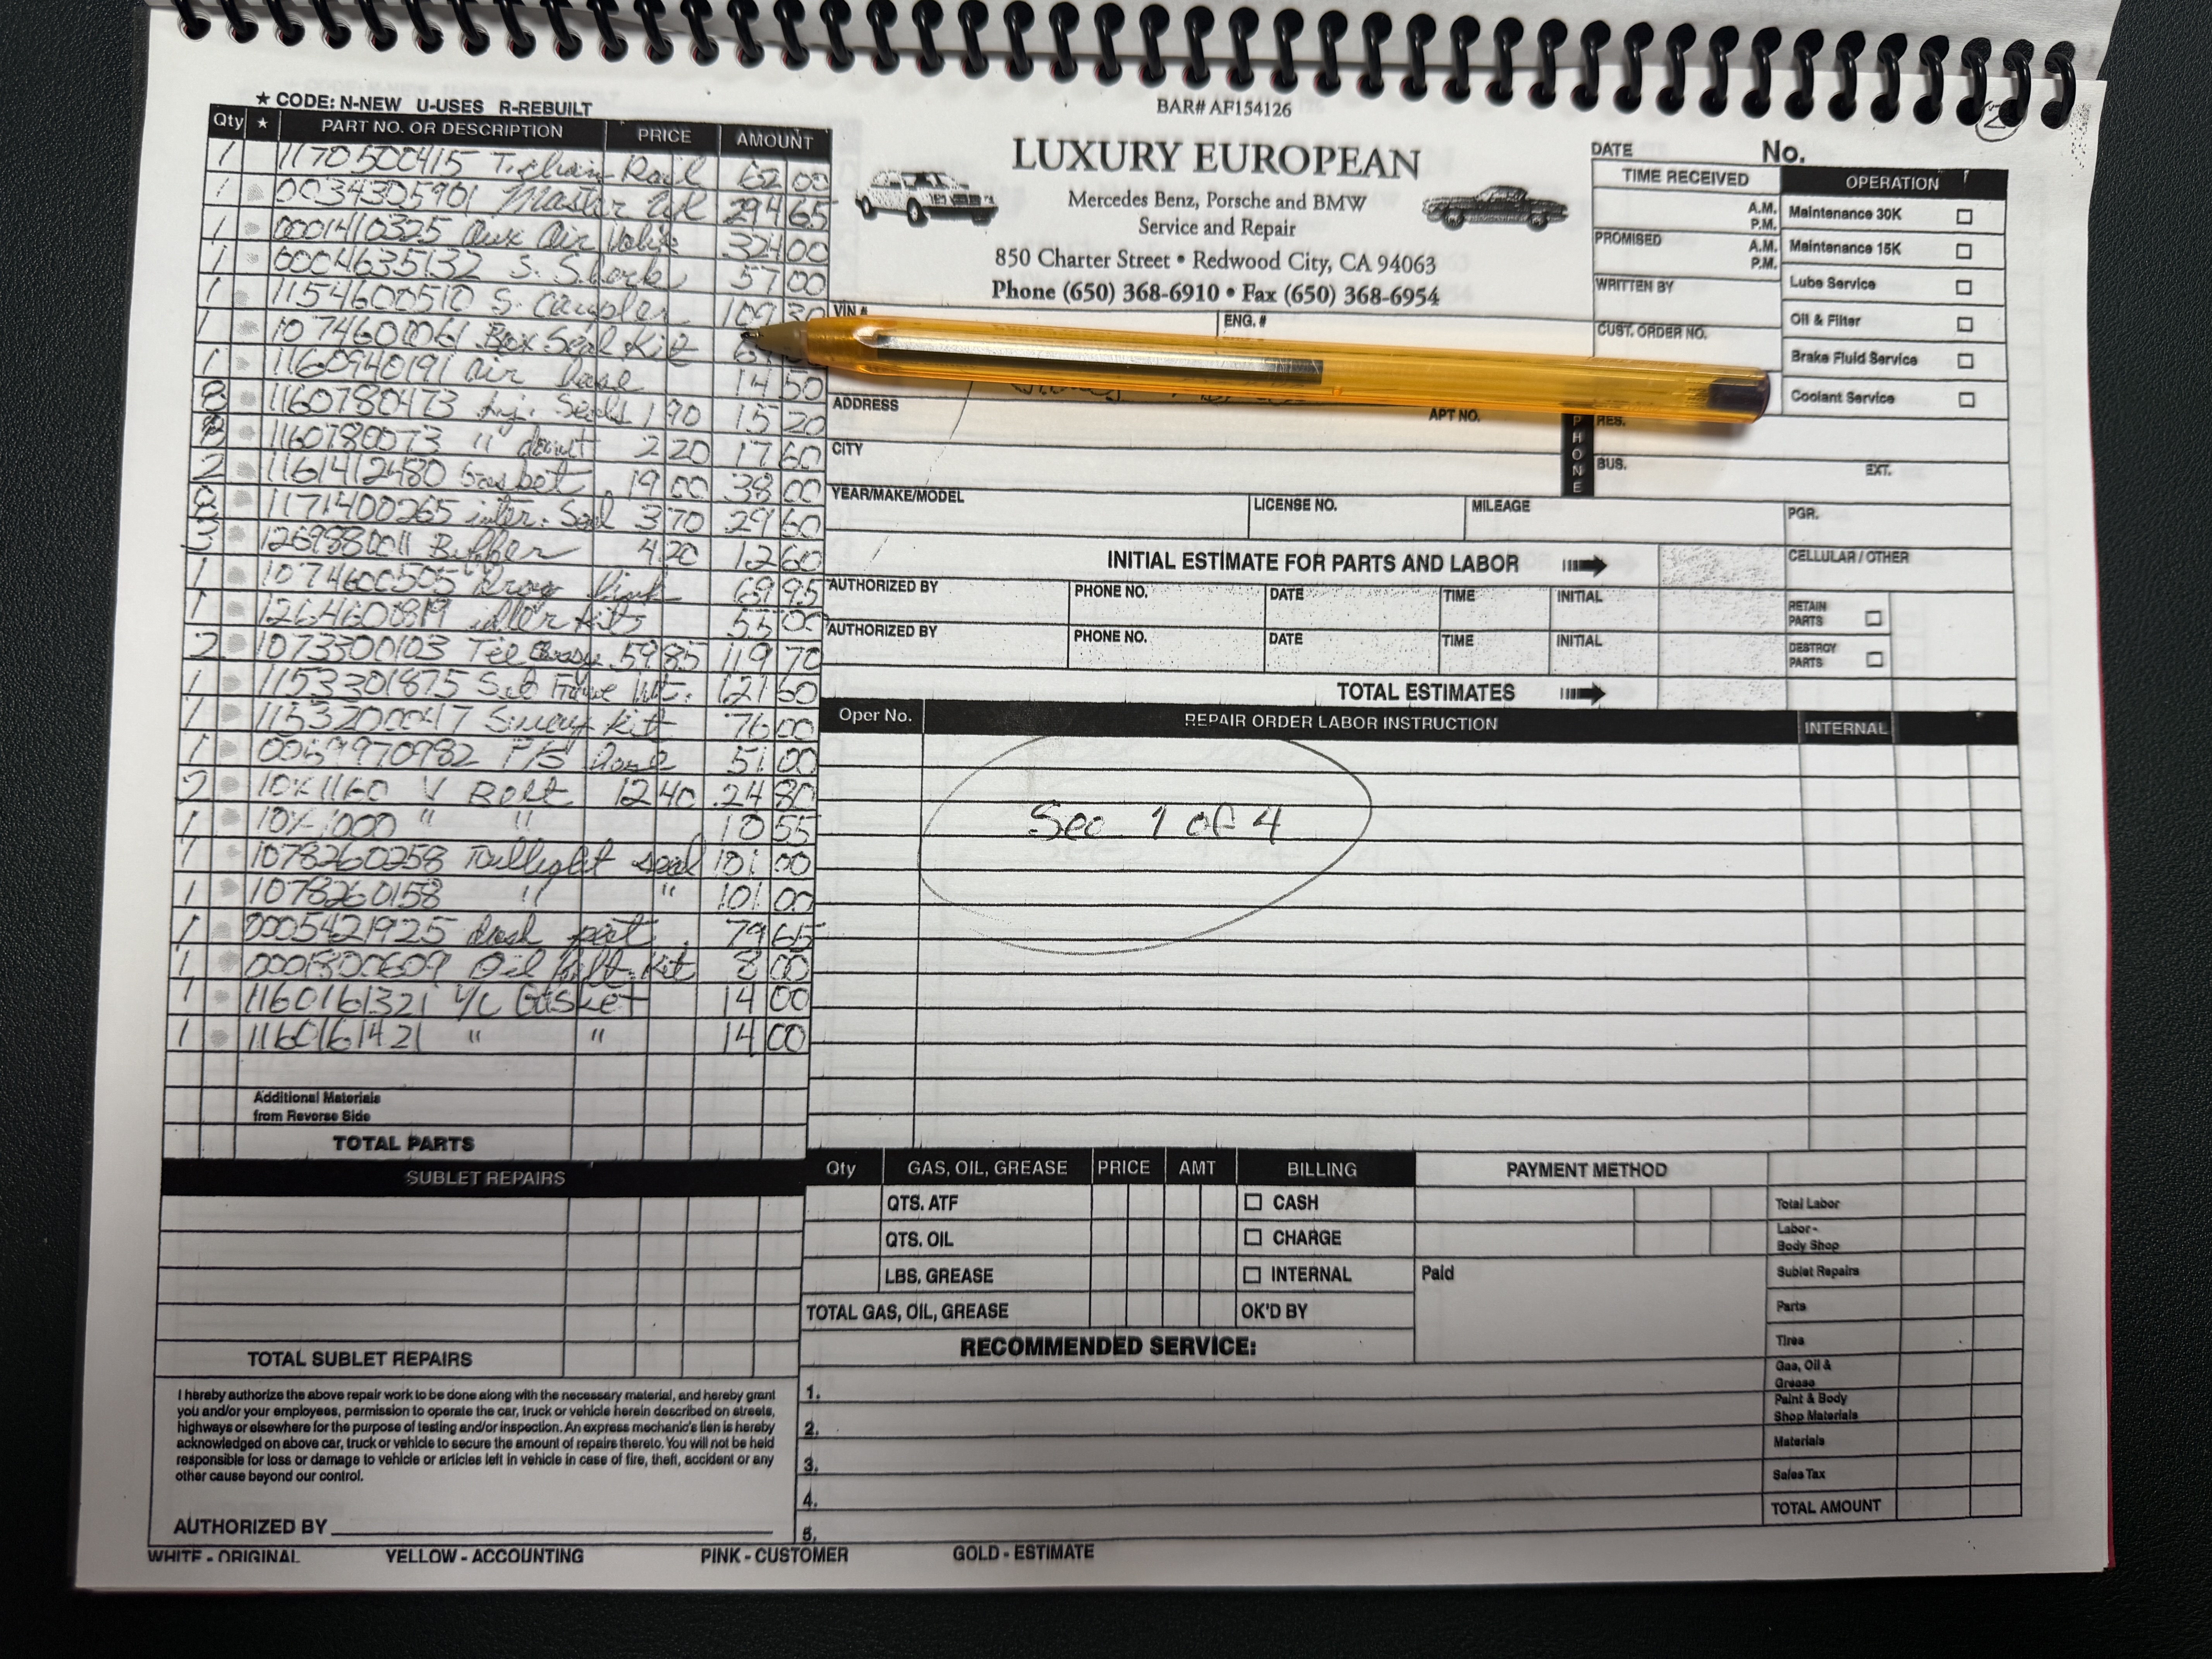 2
★ CODE: N-NEW U-USES R-REBUILT
Qty ★ PART NO. OR DESCRIPTION PRICE AMOUNT
1 1170500415 T. chain Rail 62 00
1 0034305901 Master 294 65
1 0001410325 Aux Air Valve 324 00
1 0004635132 S. Shock 57 00
1 1154600510 S. Coupler 109 30
1 1074600061 Box Seal Kit
1 1160940191 air 14 50
8 1160780473 Inj. Seals 1 90 15 20
8 1160780073 " donut 2 20 17 60
2 1161412480 Gasket 19 00 38 00
8 1171400265 inter. Seal 3 70 29 60
3 1269880011 Buffer 4 20 12 60
1 1074600505 Drag link 69 95
1 1264600819 idler kits 55 00
2 1073300103 Tie 59 85 119 70
1 1153301875 Sub Frame Mt. 121 60
1 1153200047 Sway kit 76 00
1 0059970982 P/S hose 51 00
2 10X1160 V Belt 12 40 24 80
1 10X1000 " " 10 55
1 1078260258 Taillight seal 101 00
1 1078260158 " " 101 00
1 0005421925 dash pot. 79 65
1 0001800609 Oil filt. kit 8 00
1 1160161321 V/C Gasket 14 00
1 1160161421 " " 14 00
Additional Materials
from Reverse Side
TOTAL PARTS
SUBLET REPAIRS
TOTAL SUBLET REPAIRS
I hereby authorize the above repair work to be done along with the necessary material, and hereby grant
you and/or your employees, permission to operate the car, truck or vehicle herein described on streets,
highways or elsewhere for the purpose of testing and/or inspection. An express mechanic's lien is hereby
acknowledged on above car, truck or vehicle to secure the amount of repairs thereto. You will not be held
responsible for loss or damage to vehicle or articles left in vehicle in case of fire, theft, accident or any
other cause beyond our control.
AUTHORIZED BY
WHITE - ORIGINAL YELLOW - ACCOUNTING PINK - CUSTOMER GOLD - ESTIMATE
BAR# AF154126
LUXURY EUROPEAN
Mercedes Benz, Porsche and BMW
Service and Repair
850 Charter Street • Redwood City, CA 94063
Phone (650) 368-6910 • Fax (650) 368-6954
DATE No.
TIME RECEIVED
A.M.
P.M.
PROMISED A.M.
P.M.
WRITTEN BY
CUST. ORDER NO.
OPERATION
Maintenance 30K
Maintenance 15K
Lube Service
Oil & Filter
Brake Fluid Service
Coolant Service
VIN # ENG. #
ADDRESS APT NO.
PHONE RES.
CITY BUS. EXT.
YEAR/MAKE/MODEL LICENSE NO. MILEAGE PGR.
INITIAL ESTIMATE FOR PARTS AND LABOR CELLULAR / OTHER
AUTHORIZED BY PHONE NO. DATE TIME INITIAL RETAIN PARTS
AUTHORIZED BY PHONE NO. DATE TIME INITIAL DESTROY PARTS
TOTAL ESTIMATES
Oper No. REPAIR ORDER LABOR INSTRUCTION INTERNAL
See 1 of 4
Qty GAS, OIL, GREASE PRICE AMT BILLING PAYMENT METHOD
QTS. ATF CASH Total Labor
QTS. OIL CHARGE Labor - Body Shop
LBS. GREASE INTERNAL Paid Sublet Repairs
TOTAL GAS, OIL, GREASE OK'D BY Parts
RECOMMENDED SERVICE: Tires
1. Gas, Oil & Grease
Paint & Body Shop Materials
2.
Materials
3.
Sales Tax
4.
TOTAL AMOUNT
5.